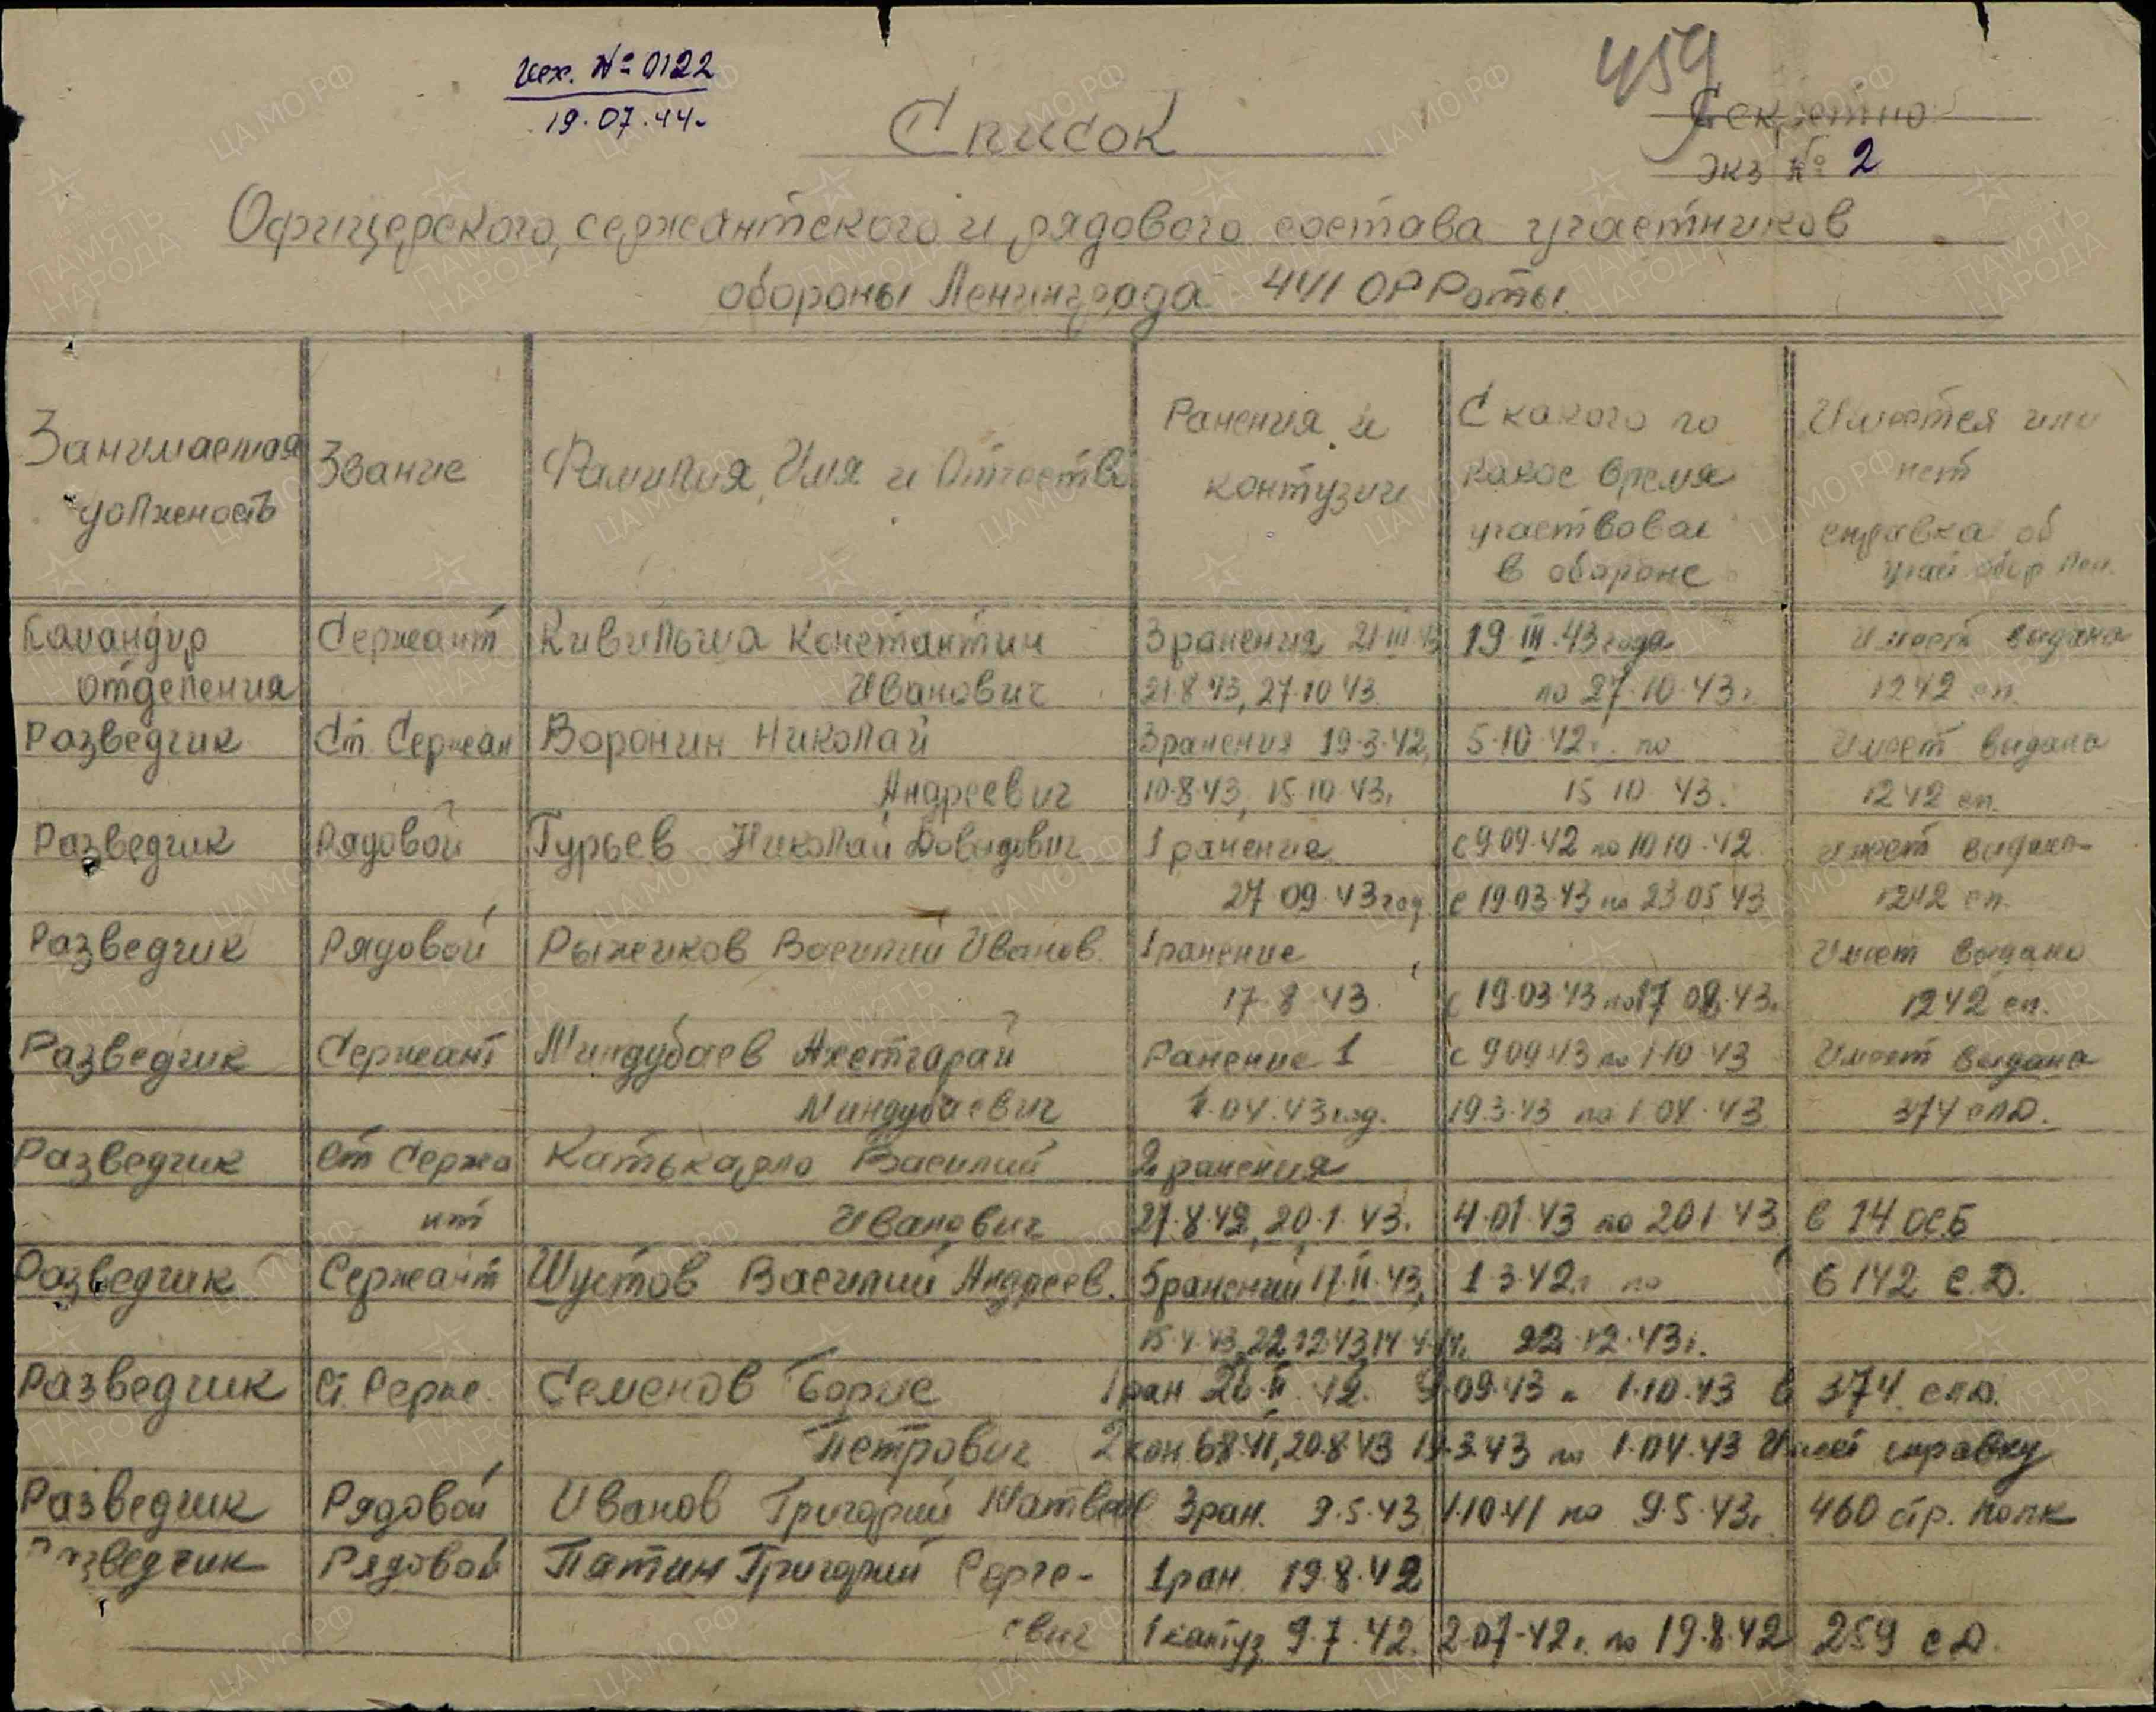 Исх. № 0122
19.07.44.
459
Список
Секретно
Экз № 2
Офицерского, сержантского и рядового состава участников
обороны Ленинграда 441 ОРРоты
Занимаемая должность
Звание
Фамилия, Имя и Отчество
Ранения и контузии
С какого по какое время участвовал в обороне
Имеется или нет справка об обор Лен.
Командир Сержант Кивильша Константин 3 ранения 21.III.43 19.III.43 года Имеет выдана
отделения Иванович 21.8.43, 27.10.43 по 27.10.43. 1242 сп.
Разведчик Ст. Сержан Воронин Николай 3 ранения 19.3.42, 5.10.42г. по Имеет выдана
Андреевич 10.8.43, 15.10.43. 15 10 43. 1242 сп.
Разведчик Рядовой Гурьев Николай Давидович 1 ранение с 9.09.42 по 10 10.42 Имеет выдана
27.09.43 год с 19.03.43 по 23.05.43 1242 сп.
Разведчик Рядовой Рыжиков Василий Иванов. 1 ранение Имеет выдана
17.8.43 с 19.03.43 по 17 08.43. 1242 сп.
Разведчик Сержант Миндубаев Ахетгарай Ранение 1 с 9.09.43 по 1.10.43 Имеет выдана
Миндубаевич 1.04.43 год. 19.3.43 по 1.04.43 374 слД.
Разведчик Ст Сержа Катькарло Василий 2 ранения
нт Иванович 27.8.42, 20.1.43. 4.01.43 по 20 1 43 в 14 ОСБ
Разведчик Сержант Шустов Василий Андреев. 5 ранений 17.II.43, 1.3.42г. по в 142 С.Д.
22.12.43г.
Разведчик Ст. Серже. Семенов Борис 1 ран 26.II.42. 9.09.43 п 1.10.43 в 374 слД.
Петрович 2 кон 20.8.43 19.3.43 по 1.04.43 Имеет справку
Разведчик Рядовой Иванов Григорий Матвее 3 ран. 9.5.43 1.10.41 по 9.5.43г. 460 стр. полк
Разведчик Рядовой Патин Григорий Серге- 1 ран. 19.8.42
евич 1 контуз 9.7.42. 2.07.42г. по 19.8.42 259 сД.